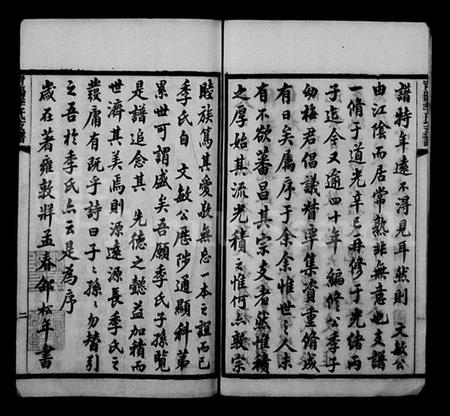 譜特年遠不得見耳然則　文敏公
由江陰而居常熟非無意也支譜
一脩于道光辛巳再修于光緒丙
子迄今又逾四十年　編修公季子
幼梅君倡議督率集資重脩成
有日矣屬序于余余惟世之人未
有不欲蕃昌其宗支者然惟積
之厚始其流光積之惟何亦敦宗
睦族篤其愛敬無忘一本之誼而已
季氏自　文敏公歷陟通顯科第
累世可謂盛矣吾願季氏子孫覽
是譜追念其　先德之懿益加積而
世濟其美焉則源遠流長季氏之
發庸有既乎詩曰子子孫孫勿替引
之吾於季氏亦云是為序
歲在著雍敦牂孟春邵松年書
二